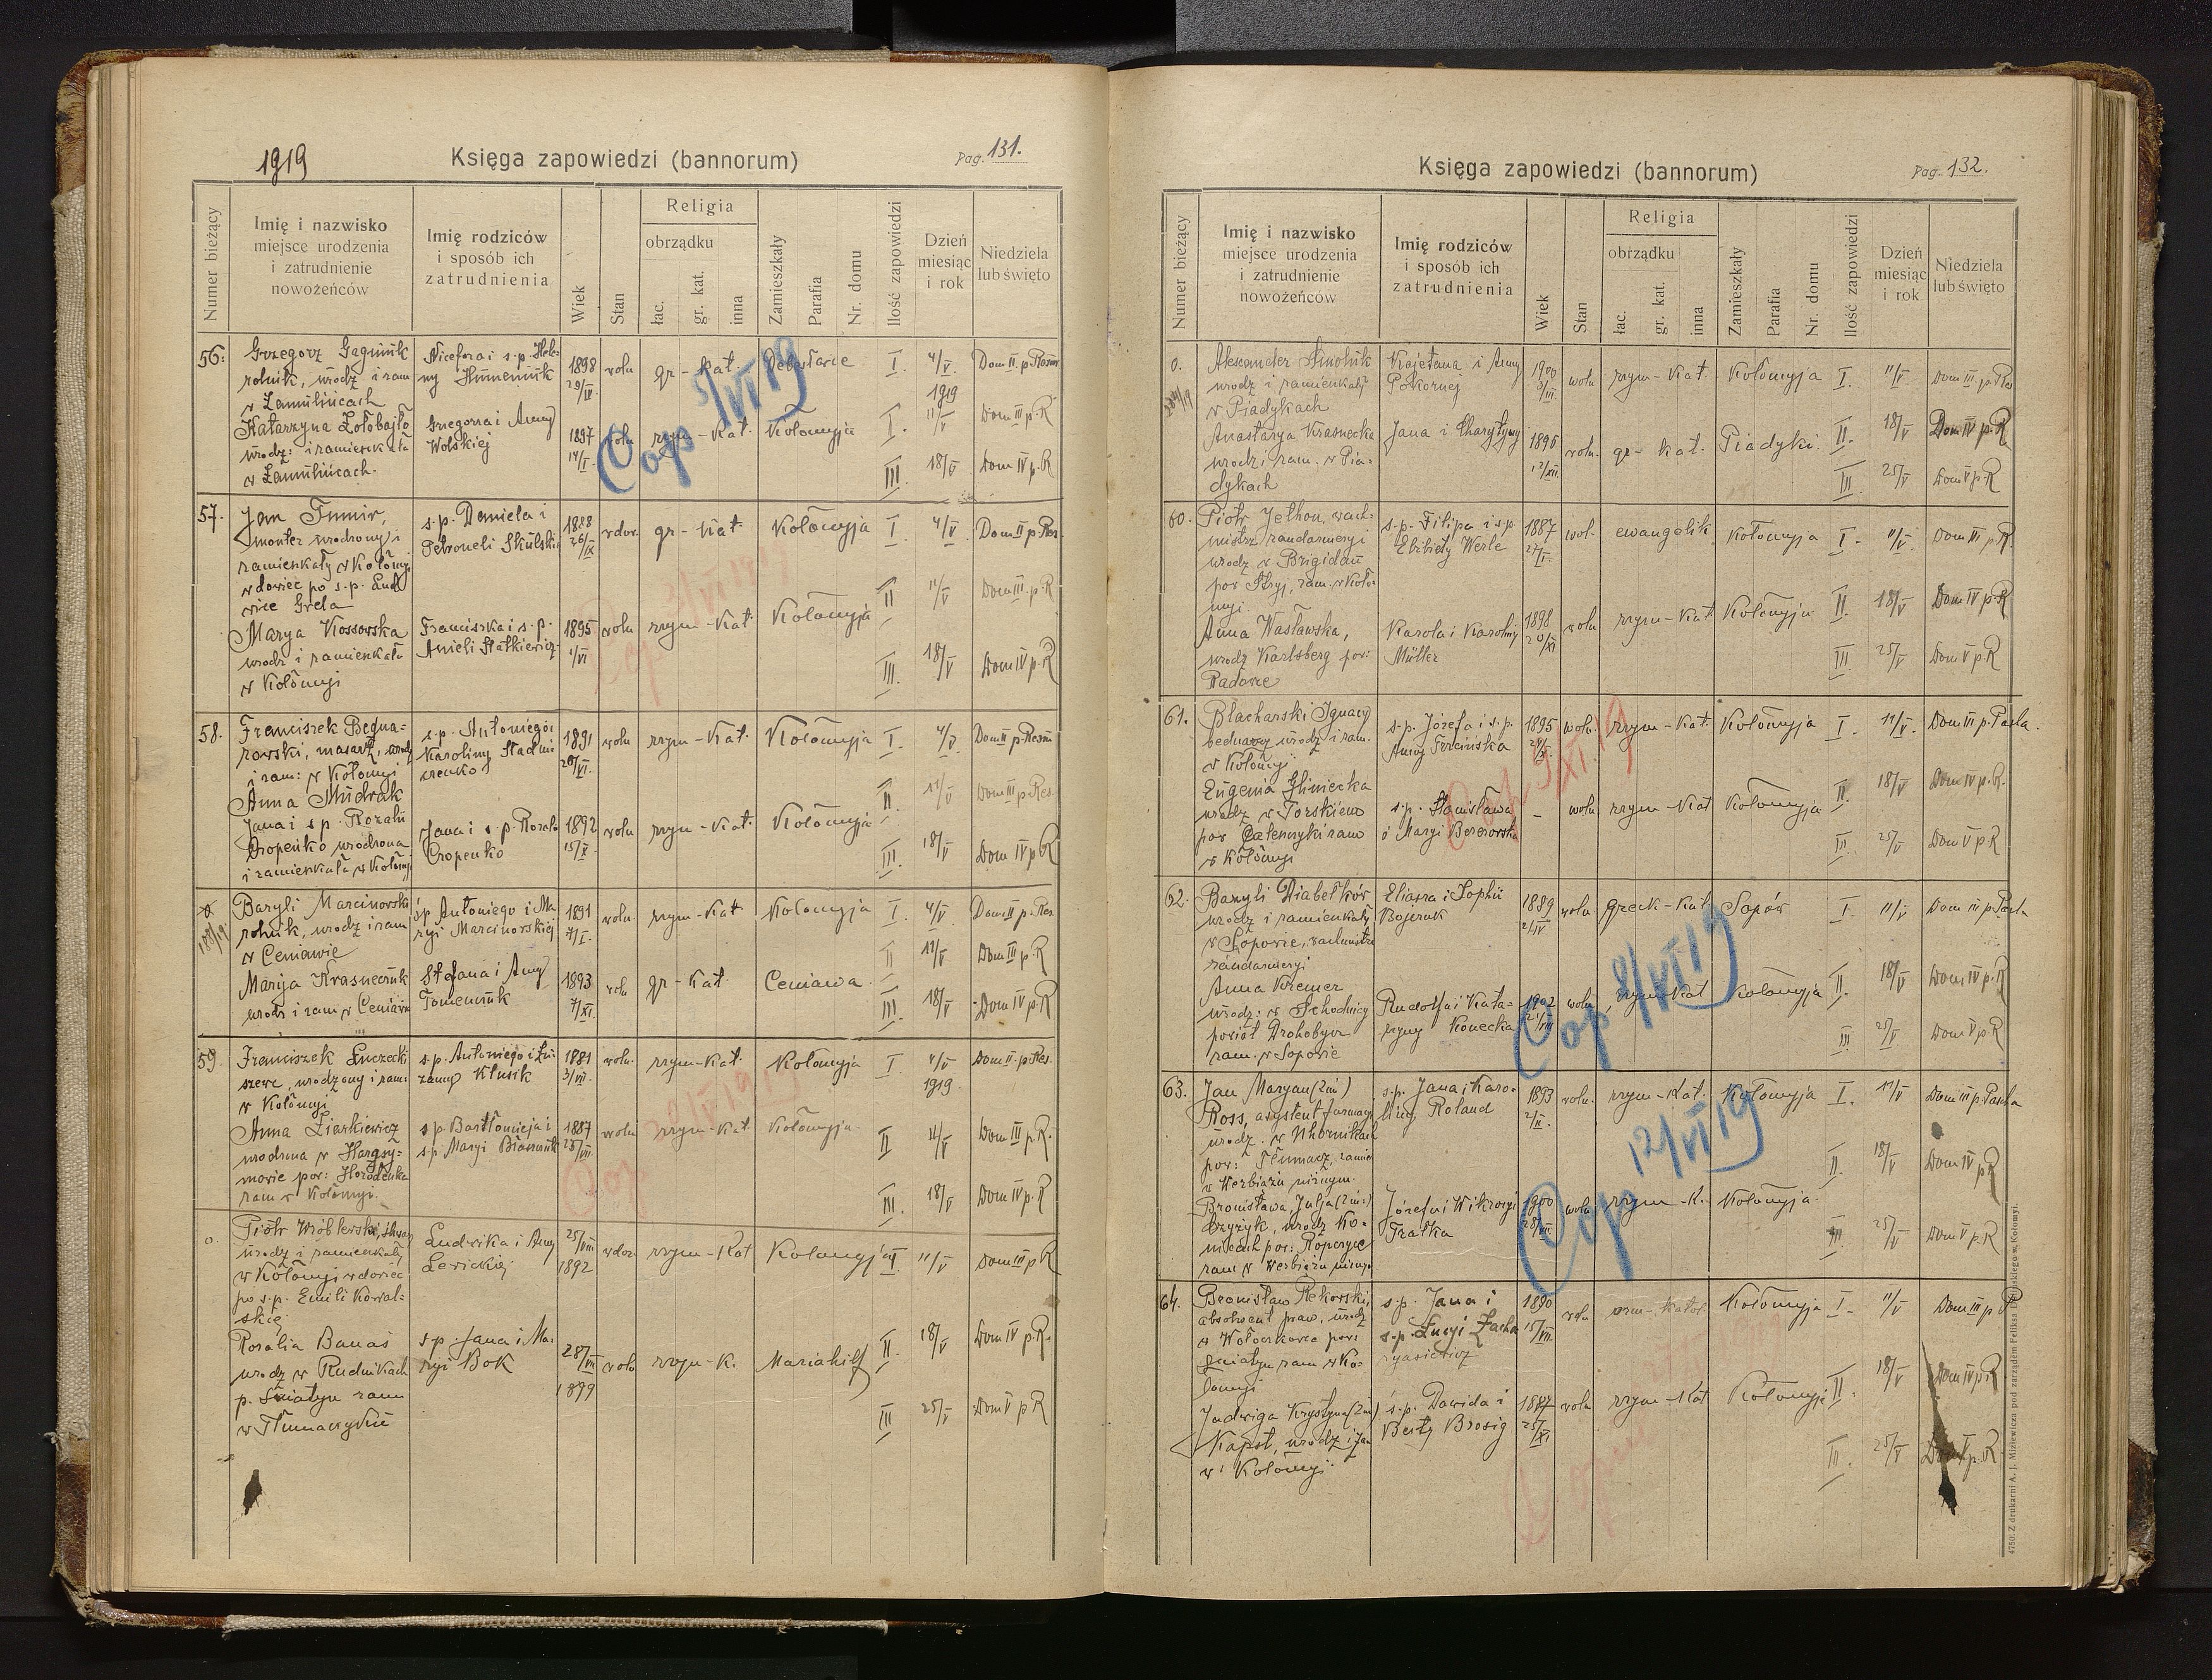 1919
Księga zapowiedzi (bannorum)
Pag. 131.
Numer bieżący
Imię i nazwisko
miejsce urodzenia
i zatrudnienie
nowożeńców
Imię rodziców
i sposób ich
zatrudnienia
Wiek
Stan
Religia
obrządku
łac.
gr. kat.
inna
Zamieszkały
Parafia
Nr. domu
Ilość zapowiedzi
Dzień
miesiąc
i rok
Niedziela
lub święto
56.
rolnik, urodz i zam
Katarzyna
urodz: i zamieszkała
Grzegorza i Anny
Wolskiej
1898
29/IV
woln
gr-kat.
I.
4/V
1919
Dom II p. Resur
1897
14/I
woln
rzym-kat.
Kołomyja
II.
11/V
Dom III p. R
III
18/V
Dom IV p. R
Cop 3/VI 19
57.
Jan
monter urodzony i
zamieszkały w Kołomyi
wdowiec po s.p. Lud
wice Grela
s.p. Daniela i
Petroneli
1888
26/IX
wdow.
gr-kat.
Kołomyja
I.
4/V
Dom II p. Res.
II
11/V
Dom III p. R
Marya Kossowska
urodz i zamieszkała
w Kołomyi
Franciszka i s.p.
Anieli Statkiewicz
1895
1/VI
woln
rzym-kat.
Kołomyja
III.
18/V
Dom IV p. R
58.
Franciszek Bedna-
rowski, masarz, urodz
i zam: w Kołomyi
Anna Mudrak
Jana i s p. Rozalii
Cropenko urodzona
i zamieszkała w Kołomyi
s.p. Antoniego i
Karoliny
1891
woln
rzym-kat.
Kołomyja
I.
4/V
Dom II p. Resur
II.
11/V
Dom III p. Res.
Jana i s.p. Rozalii
Cropenko
1892
15/X
woln
rzym-kat.
Kołomyja
III.
18/V
Dom IV p R
0
188/19
Bazyli Marcinowski
rolnik, urodz i zam
w Ceniawie
ś p Antoniego i Ma
ryi Marcinowskiej
1891
7/I.
woln.
rzym-kat
Kołomyja
I.
4/V
Dom II p. Res.
II
11/V
Dom III p. R
Marija Krasneczuk
urodz i zam w Ceniawie
Stefana i Anny
Tomenczuk
1893
7/XI.
woln
gr-kat.
Ceniawa
III.
18/V
Dom IV p. R
59.
Franciszek
szewc, urodzony i zam
w Kołomyi
s.p. Antoniego i Zu-
zanny Klusik
1881
3/VII.
woln.
rzym-kat
Kołomyja
I.
4/V
1919.
Dom II. p. Res.
Anna Ziarkiewicz
urodzona w Harasy-
mowie pow: Horodenka
zam w Kołomyi
s p Bartłomieja i
s.p. Maryi
1887
woln
rzym-kat
Kołomyja
II
11/V
Dom III p. R.
III.
18/V
Dom IV p. R
Cop
0.
Piotr Wróblewski,
urodz i zamieszkały
w Kołomyi wdowiec
po s.p. Emilii Kowal-
skiej
Ludwika i Anny
Lewickiej
25/VIII
1892
wdow
rzym-kat
Kołomyja
I
11/V
Dom III p R
Rozalia Banaś
urodz w Rudnikach
p. Śniatyn zam
w Tłumaczyku
s.p. Jana i Ma-
ryi Bok
28/VII
1899
woln
rzym-k.
Mariahilf
II
18/V
Dom IV p. R.
III
25/V
Dom V p R
Księga zapowiedzi (bannorum)
Pag. 132.
Numer bieżący
Imię i nazwisko
miejsce urodzenia
i zatrudnienie
nowożeńców
Imię rodziców
i sposób ich
zatrudnienia
Wiek
Stan
Religia
obrządku
łac.
gr. kat.
inna
Zamieszkały
Parafia
Nr. domu
Ilość zapowiedzi
Dzień
miesiąc
i rok
Niedziela
lub święto
0.
Alexander Smolnik
urodz i zamieszkały
w Piadykach
Kajetana i Anny
Pokornej
1900
3/III
woln
rzym-kat.
Kołomyja
I.
11/V
Dom III. p. Res
Anastazya Krasnecka
urodz, zam. w Pia-
dykach
Jana i Charytyny
1895
12/XII
woln.
gr-kat.
Piadyki
II.
18/V
Dom IV p. R
III.
25/V
Dom V p. R
60.
Piotr Jelhon, wach-
mistrz żandarmeryi
urodz w Brigidau
pow Stryj, zam. w Koło-
myi.
s.p. Filipa i s.p.
Elżbiety Werle
1887
27/I.
wol.
ewangelik
Kołomyja
I.
11/V
Dom III p. R.
Anna Wasławska,
urodz Karlsberg pow:
Radowce
Karola i Karoliny
Müller
1898
20/XI
woln
rzym-kat
Kołomyja
II.
18/V
Dom IV p. R
III
25/V
Dom V p. R
61.
Blacharski Ignacy
bednarz urodz i zam.
w Kołomyi
s.p. Józefa i s.p.
Anny Trzcińska
1895
woln.
rzym-kat.
Kołomyja
I.
11/V.
Dom III p. Pasla.
Eugenia Gliniecka
urodz w Torskiem
pow Zaleszczyki zam
w Kołomyi
s.p. Stanisława
i Maryi Berezowska
-
woln
rzym-kat
Kołomyja
II.
18/V
Dom IV p. R.
III.
25/V
Dom V p R
62.
Bazyli Diabełków
urodz i zamieszkały
w Sopowie, wachmistrz
żandarmeryi
Eliasza i Zophii
Bojczuk
1889
2/IV
woln
greck-kat.
Sopów
I.
11/V
Dom III p. Pasla
Anna Kremer
urodz: w Schodnicy
powiat Drohobycz
zam. w Sopowie
Rudolfa i Kata-
rzyny Konecka
1902
21/VIII
woln
rzym-kat
Kołomyja
II.
18/V
Dom IV p. R
III
25/V
Dom V p R
Cop 8/VI 19
63.
Jan Maryan (2im)
Ross, asystent farmacyi
urodz. w
pow: Tłumacz, zamie
w Werbiążu niżnym.
s.p. Jana i Karo-
liny Roland
1893
2/II.
woln.
rzym-kat.
Kołomyja
I.
11/V
Dom III p. Pascha
II.
18/V
Dom IV p R
Bronisława Julja (2im:)
Czyżyk, urodz Ko-
pow: Ropczyce
zam w Werbiążu niżnym
Józefa i Wiktoryi
Tratka
1900
28/VII.
woln
rzym-k.
Kołomyja
III.
25/V
Dom V p. R
Cop 12/VI 19
64.
Bronisław Rekowski,
absolwent praw, urodz
pow:
Śniatyn zam w Ko-
łomyi
s.p. Jana i
s.p. Łucyi Zacha
ryasiewicz
1890
15/VII.
woln
rzm-katol
Kołomyja
I.
11/V
Dom III p R
Jadwiga Krystyna (2im)
Kapst, urodz i zam
w Kołomyi
ś.p. Dawida i
Berty Brosig
1887
25/XI
woln
rzym-kat
Kołomyja
II.
18/V
Dom IV p. R
III.
25/V
Dom V p. R
4750. Z drukarni A. J. Miziewicza pod zarządem Feliksa w Kołomyi.